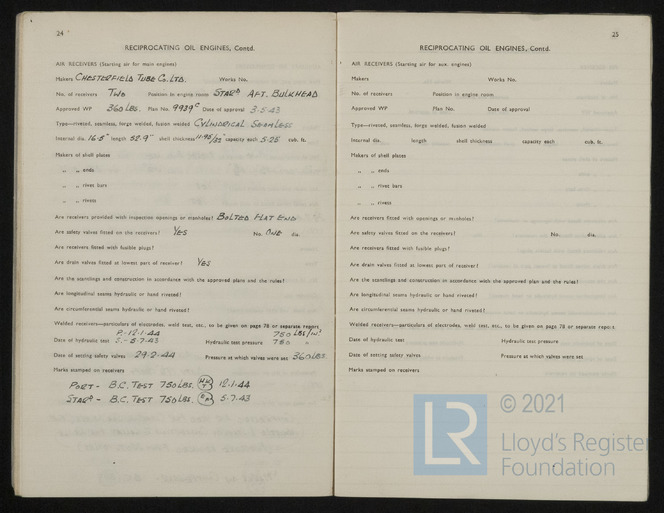 24
RECIPROCATING OIL ENGINES, Contd.
AIR RECEIVERS (Starting air for main engines)
Makers CHESTERFIELD TUBE CO. LTD. Works No.
No. of receivers TWO Position in engine room STARD AFT. BULKHEAD
Approved WP 360 LBS. Plan No. 9939C Date of approval 3-5-43
Type—riveted, seamless, forge welded, fusion welded CYLINDRICAL SEAMLESS
Internal dia. 16.5" length 52.9" shell thickness capacity each 5.25 cub. ft.
Makers of shell plates
„ „ ends
„ „ rivet bars
„ „ rivets
Are receivers provided with inspection openings or manholes? BOLTED FLAT END
Are safety valves fitted on the receivers? YES No. ONE dia.
Are receivers fitted with fusible plugs?
Are drain valves fitted at lowest part of receiver? YES
Are the scantlings and construction in accordance with the approved plans and the rules?
Are longitudinal seams hydraulic or hand riveted?
Are circumferential seams hydraulic or hand riveted?
Welded receivers—particulars of electrodes, weld test, etc., to be given on page 78 or separate report
P.-12-1-44 750 LBS/IN²
Date of hydraulic test S.- 5-7-43 Hydraulic test pressure 750 "
Date of setting safety valves 29-2-44 Pressure at which valves were set 360 LBS
Marks stamped on receivers
PORT - B.C. TEST 750 LBS. 12-1-44
STARD - B.C. TEST 750 LBS. 5-7-43
25
RECIPROCATING OIL ENGINES, Contd.
AIR RECEIVERS (Starting air for aux. engines)
Makers Works No.
No. of receivers Position in engine room
Approved WP Plan No. Date of approval
Type—riveted, seamless, forge welded, fusion welded
Internal dia. length shell thickness capacity each cub. ft.
Makers of shell plates
„ „ ends
„ „ rivet bars
„ „ rivets
Are receivers fitted with openings or manholes?
Are safety valves fitted on the receivers? No. dia.
Are receivers fitted with fusible plugs?
Are drain valves fitted at lowest part of receiver?
Are the scantlings and construction in accordance with the approved plans and the rules?
Are longitudinal seams hydraulic or hand riveted?
Are circumferential seams hydraulic or hand riveted?
Welded receivers—particulars of electrodes, weld test, etc., to be given on page 78 or separate report
Date of hydraulic test Hydraulic test pressure
Date of setting safety valves Pressure at which valves were set
Marks stamped on receivers
© 2021
LR
Lloyd's Register
Foundation